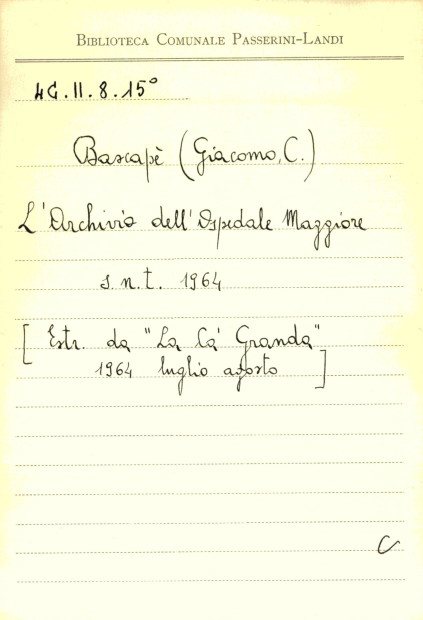 BIBLIOTECA COMUNALE PASSERINI-LANDI
4G.II.8.15°
Bascapè (Giacomo, C.)
L'Archivio dell'Ospedale Maggiore
s.n.t. 1964
[Estr. da "La Ca' Granda"
1964 luglio agosto]
C